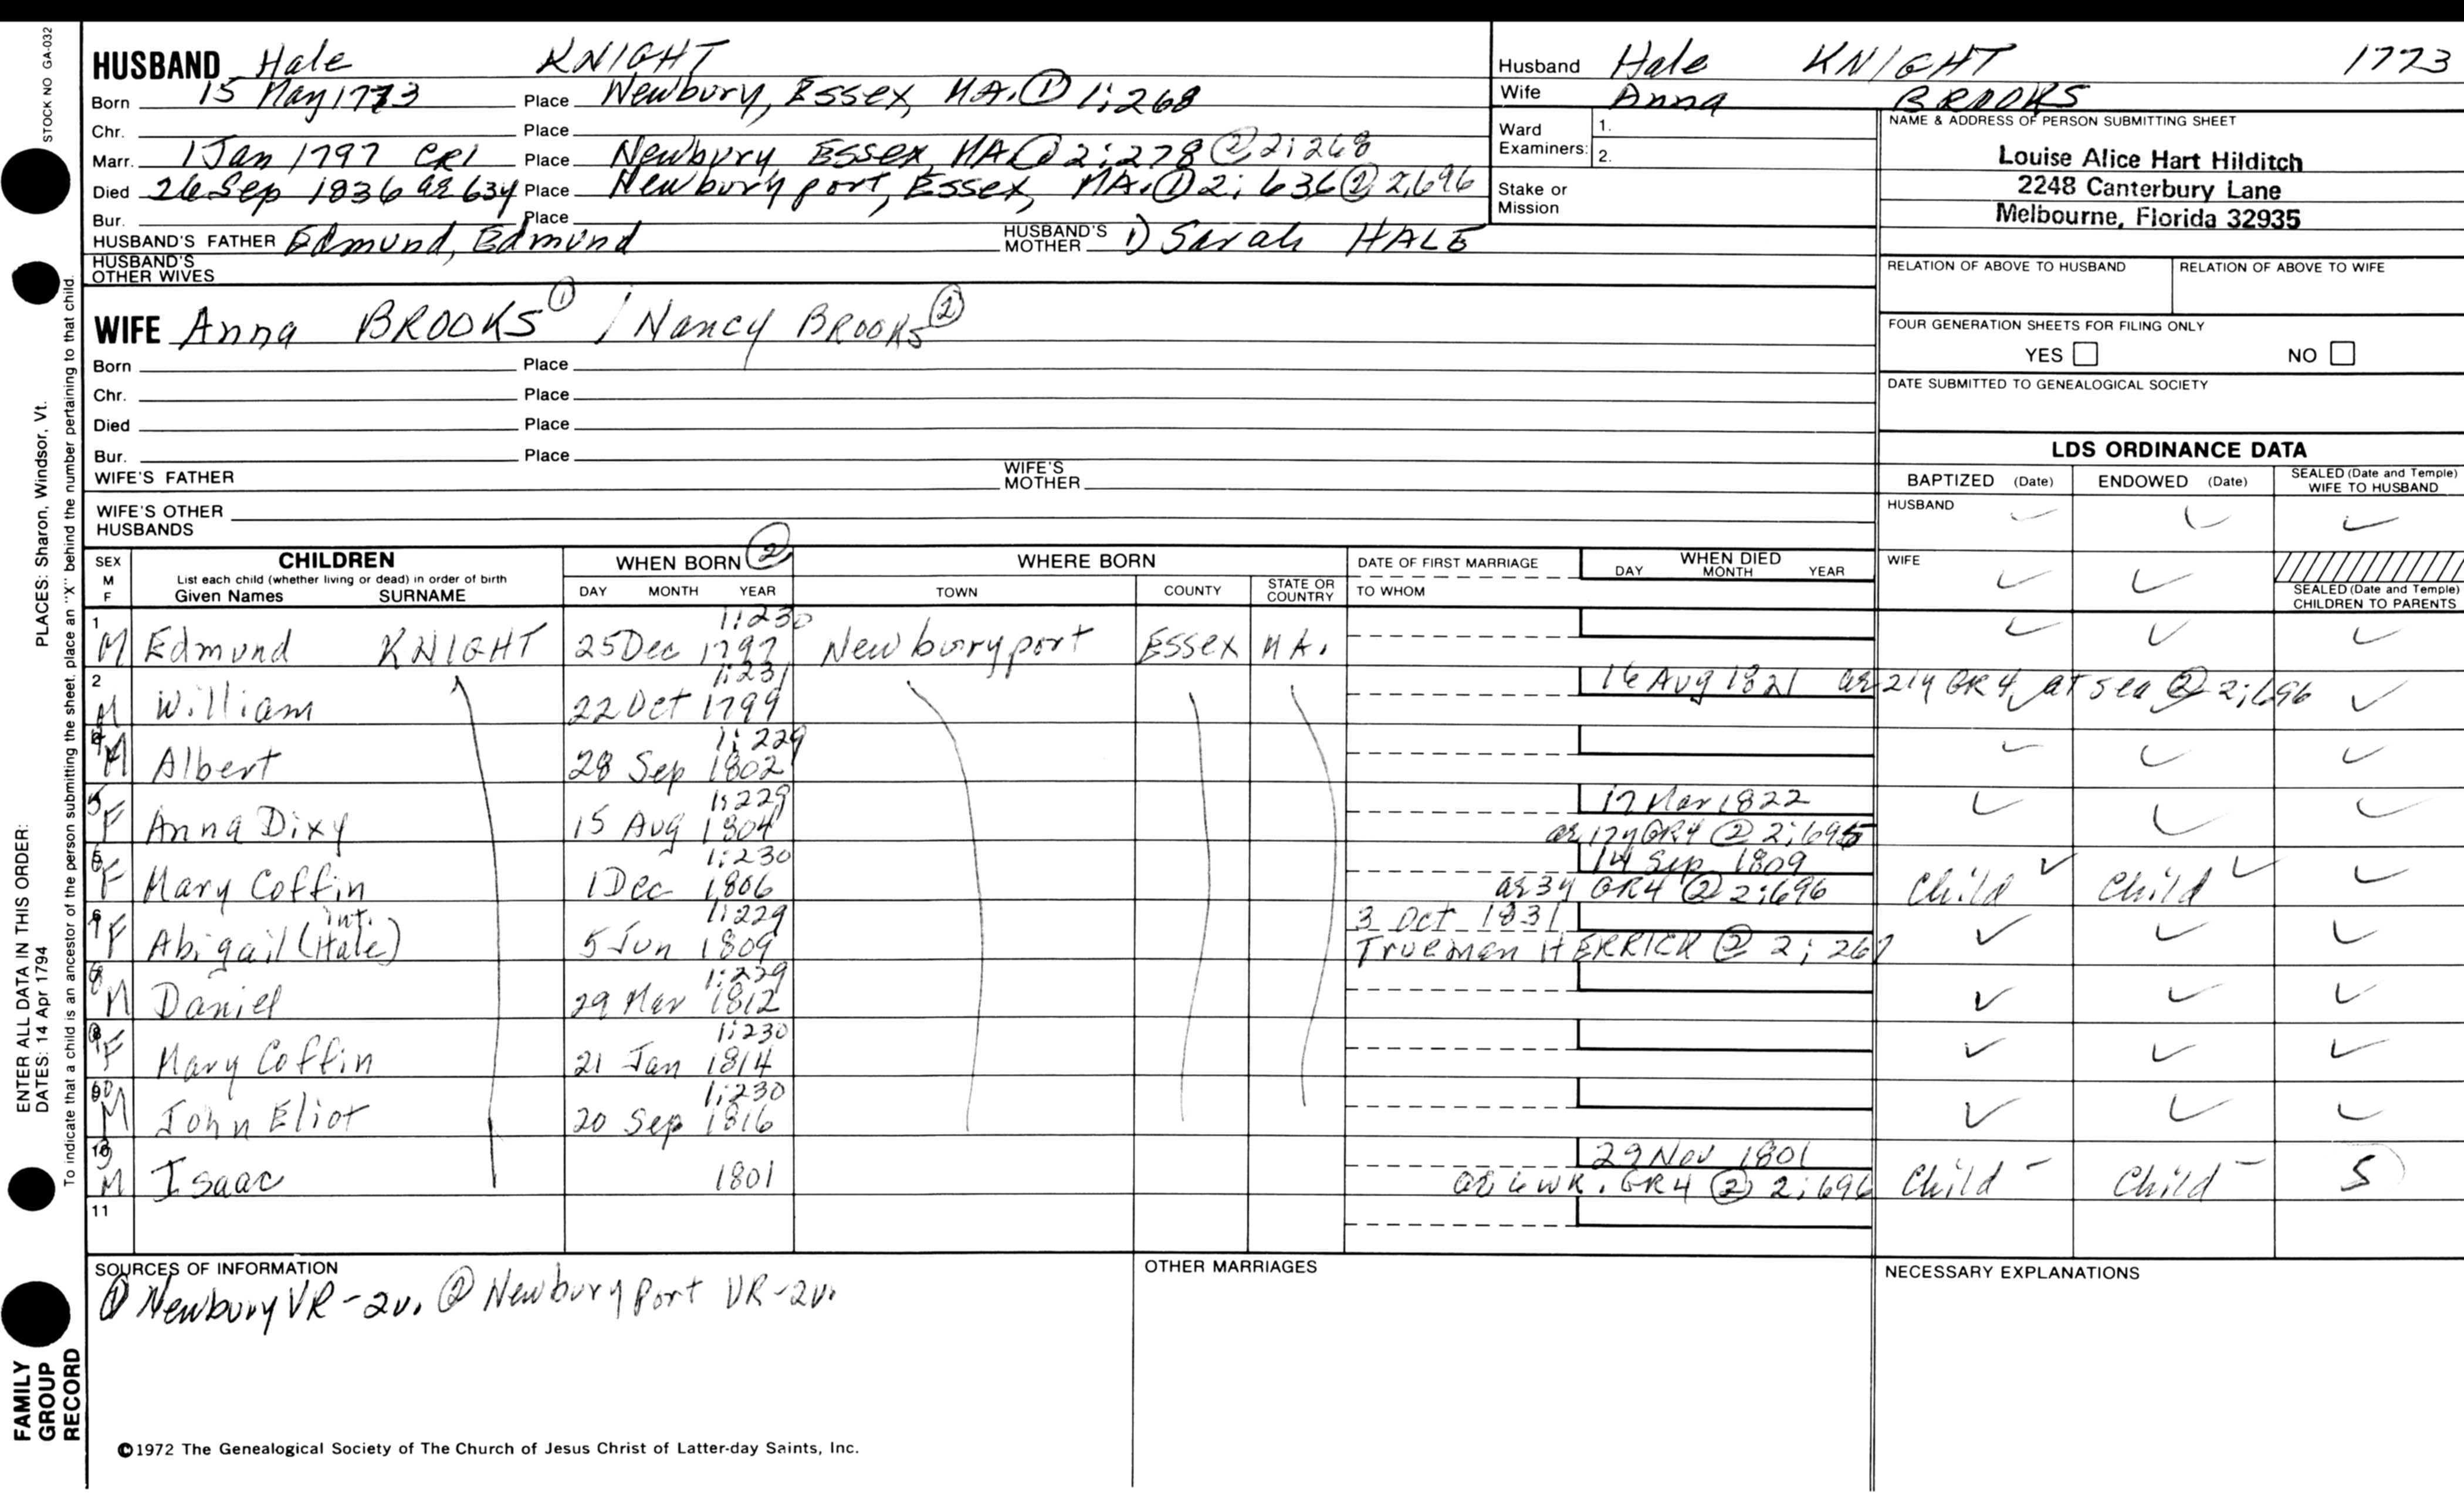 STOCK NO GA-032
PLACES: Sharon, Windsor, Vt.
ENTER ALL DATA IN THIS ORDER:
DATES: 14 Apr 1794
To indicate that a child is an ancestor of the person submitting the sheet, place an "X" behind the number pertaining to that child.
FAMILY
GROUP
RECORD
HUSBAND Hale KNIGHT
Born 15 May 1773 Place Newbury, Essex, MA. ① 1:268
Chr. Place
Marr. 1 Jan 1797 CR1 Place Newbury Essex, MA ① 2:278 ② 2:268
Died 26 Sep 1836 ae 63y Place Newburyport, Essex, MA. ① 2: 636 ② 2:696
Bur. Place
HUSBAND'S FATHER Edmund, Edmund HUSBAND'S MOTHER 1) Sarah HALE
HUSBAND'S OTHER WIVES
WIFE Anna BROOKS ① / Nancy BROOKS ②
Born Place
Chr. Place
Died Place
Bur. Place
WIFE'S FATHER WIFE'S MOTHER
WIFE'S OTHER HUSBANDS
Husband Hale KNIGHT 1773
Wife Anna BROOKS
Ward Examiners: 1.
2.
Stake or Mission
NAME & ADDRESS OF PERSON SUBMITTING SHEET
Louise Alice Hart Hilditch
2248 Canterbury Lane
Melbourne, Florida 32935
RELATION OF ABOVE TO HUSBAND RELATION OF ABOVE TO WIFE
FOUR GENERATION SHEETS FOR FILING ONLY
YES NO
DATE SUBMITTED TO GENEALOGICAL SOCIETY
LDS ORDINANCE DATA
BAPTIZED (Date) ENDOWED (Date) SEALED (Date and Temple) WIFE TO HUSBAND
HUSBAND ✓ ✓ ✓
WIFE ✓ ✓
SEALED (Date and Temple) CHILDREN TO PARENTS
SEX M F CHILDREN List each child (whether living or dead) in order of birth Given Names SURNAME
WHEN BORN ② DAY MONTH YEAR
WHERE BORN TOWN COUNTY STATE OR COUNTRY
DATE OF FIRST MARRIAGE TO WHOM
WHEN DIED DAY MONTH YEAR
1 1:230
M Edmund KNIGHT 25 Dec 1797 Newburyport Essex MA. ✓ ✓ ✓
2 1:231 16 Aug 1821 ae 21y GR4, at sea ② 2:696
M William 22 Oct 1799 ✓ ✓ ✓
4 1:229
M Albert 28 Sep 1802 ✓ ✓ ✓
5 1:229 17 Mar 1822
F Anna Dixy 15 Aug 1804 ae 17y GR4 ② 2:695 ✓ ✓ ✓
6 1:230 14 Sep 1809
F Mary Coffin 1 Dec 1806 ae 3y GR4 ② 2:696 Child ✓ Child ✓ ✓
7 int. 1:229 3 Oct 1831
F Abigail (Hale) 5 Jun 1809 Trueman HERRICK ② 2: 267 ✓ ✓ ✓
8 1:229
M Daniel 29 Mar 1812 ✓ ✓ ✓
9 1:230
F Mary Coffin 21 Jan 1814 ✓ ✓ ✓
10 1:230
M John Eliot 20 Sep 1816 ✓ ✓ ✓
3 29 Nov 1801
M Isaac 1801 ae 6 wk. GR4 ② 2:696 Child - Child - S
11
SOURCES OF INFORMATION
① Newbury VR-2v. ② Newburyport VR-2v.
OTHER MARRIAGES
NECESSARY EXPLANATIONS
©1972 The Genealogical Society of The Church of Jesus Christ of Latter-day Saints, Inc.